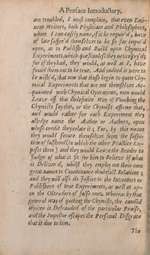 A Preface Introductory.
are troubled, I must complain, that even Emi-
nent Writers, both Physitians and Philosophers,
whom I can easily name, if it be requir'd, have of
late suffer'd themselves to be so far impos'd
upon, as to Publish and Build upon Chymical
Experiments, which questionless they never try'd;
for if they had, they would, as well as I, have
found them not to be true. And indeed it were to
be wish'd, that now that those begin to quote Chy-
mical Experiments that are not themselves Ac-
quainted with Chymical Operations, men would
Leave off that Indefinite Way of Vouching the
Chymists say this, or the Chymists affirme that,
and would rather for each Experiment they
alledge name the Author or Authors, upon
whose credit they relate it; For, by this means
they would secure themselves from the suspi-
tion of falshood (to which the other Practice Ex-
poses them) and they would Leave the Reader to
Judge of what is fit for him to Believe of what
is Deliver'd, whilst they employ not their own
great names to Countenance doubtfull Relations;
and they will also do Justice to the Inventors or
Publishers of true Experiments, as well as up-
on the Obtruders of false ones. Whereas by that
general Way of quoting the Chymists, the candid
Writer is Defrauded of the particular Praise,
and the Impostor escapes the Personal Disgrace
that is due to him.
The